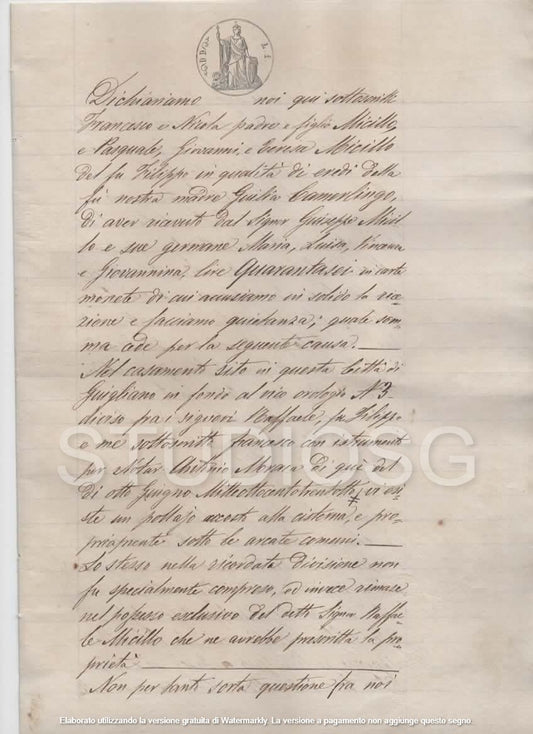 Dichiariamo noi qui sottoscritti
Francesco e Nicola padre e figlio Micillo,
e Pasquale, Giovanni, e Teresa Micillo
del fu Filippo in qualità di eredi della
fu nostra madre Giulia Camerlingo,
di aver ricevuto dal Signor Giuseppe Micil
lo e sue germane Maria, Luisa, Vincenza
e Giovannina, lire Quarantasei in carta
moneta di cui accusiamo in solido la rice-
zione e facciamo quietanza; quale som-
ma cede per la seguente causa.
Nel casamento sito in questa Città di
Giugliano in fondo al vico orologio N. 3
diviso fra i signori Raffaele, fu Filippo
e me sottoscritto Francesco con istrumento
per Notar Antonio di qui del
dì otto Giugno Milleottocentotrentotto, vi esi-
ste un pollajo accosto alla cisterna, e pro-
priamente sotto le arcate comuni.
Lo stesso nella ricordata divisione non
fu specialmente compreso, ed invece rimase
nel possesso esclusivo del detto Signor Raffae
le Micillo che ne avrebbe prescritta la pro-
prietà
Non per tanto sorta questione fra noi
STUDIOSG
Elaborato utilizzando la versione gratuita di Watermarkly. La versione a pagamento non aggiunge questo segno.